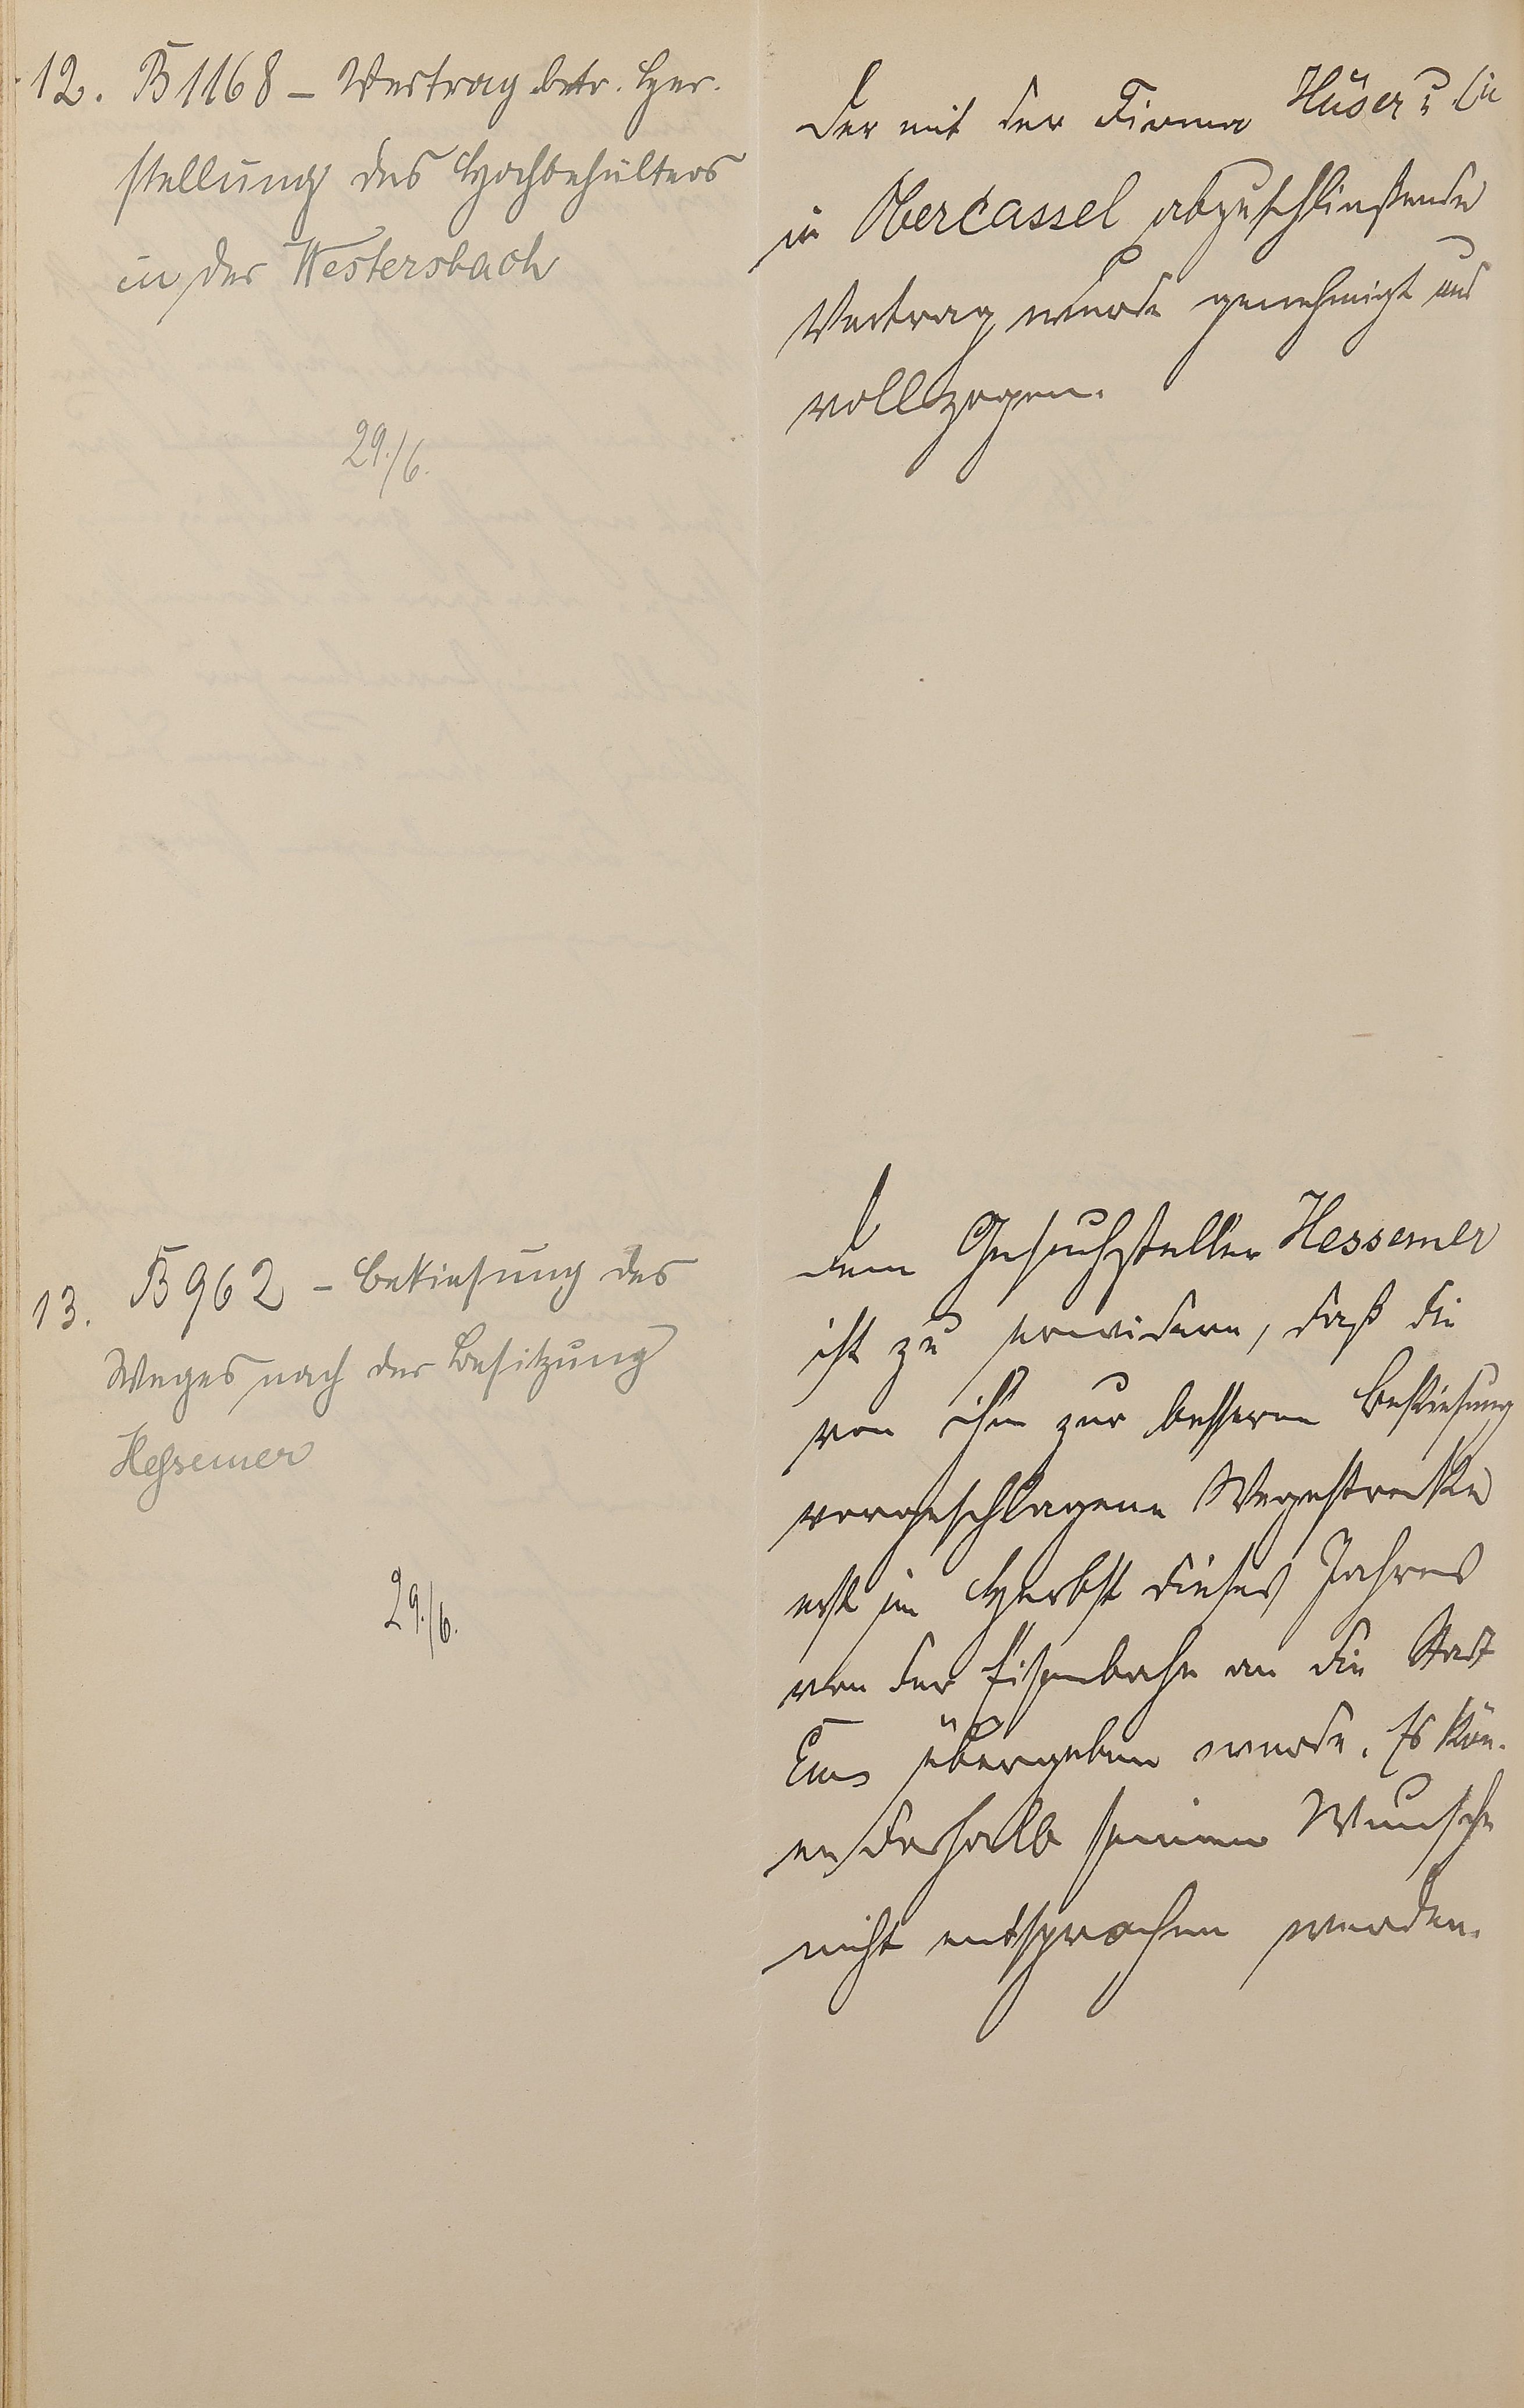 12. B 1168 – Vertrag betr. Her-
stellung des Hochbehälters
in der Westersbach
29./6.
Der mit der Firma Hüser u. Cie
in Obercassel abzuschließende
Vertrag wurde genehmigt und
vollzogen.
13. B 962 – Bekiesung des
Weges nach der Besitzung
Hessemer
29./6.
Dem Gesuchsteller Hessemer
ist zu erwidern, daß die
von ihm zur besseren Bekiesung
vorgeschlagene Wegestrecke
erst im Herbst dieses Jahres
von der Eisenbahn an die Stadt
Ems übergeben werde. Es kön-
ne deshalb seinem Wunsche
nicht entsprochen werden.